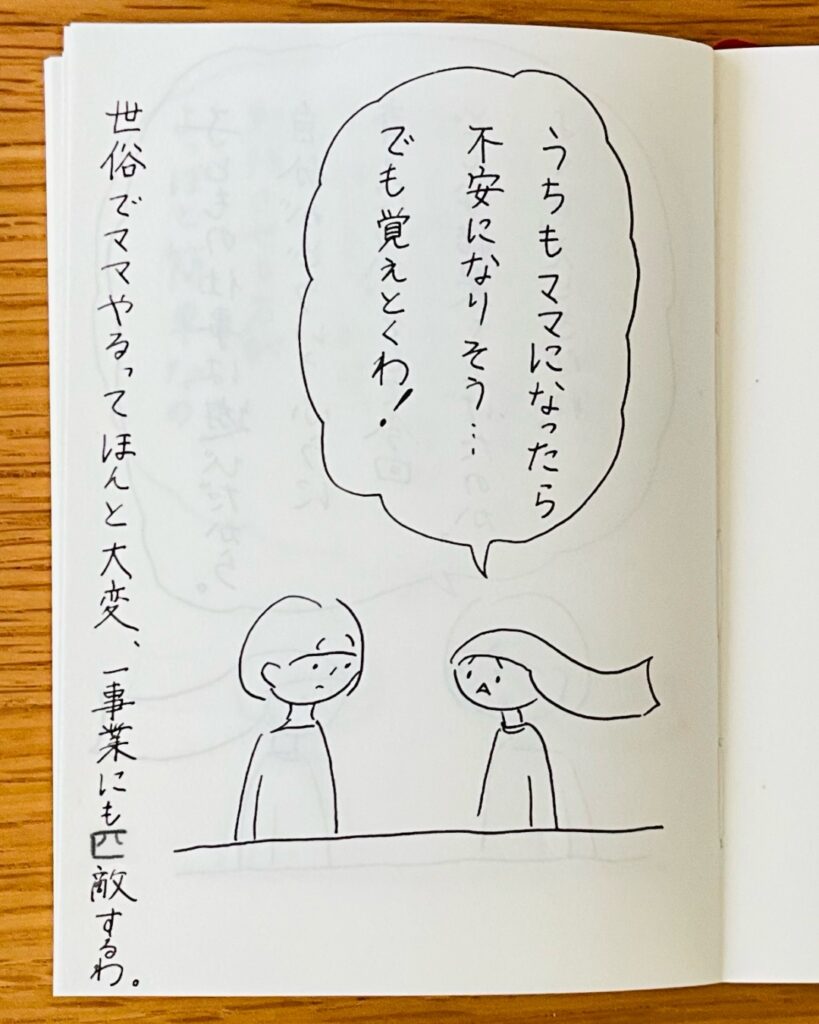 うちもママになったら
不安になりそう…
でも覚えとくわ!
世俗でママやるってほんと大変、一事業にも匹敵するわ。